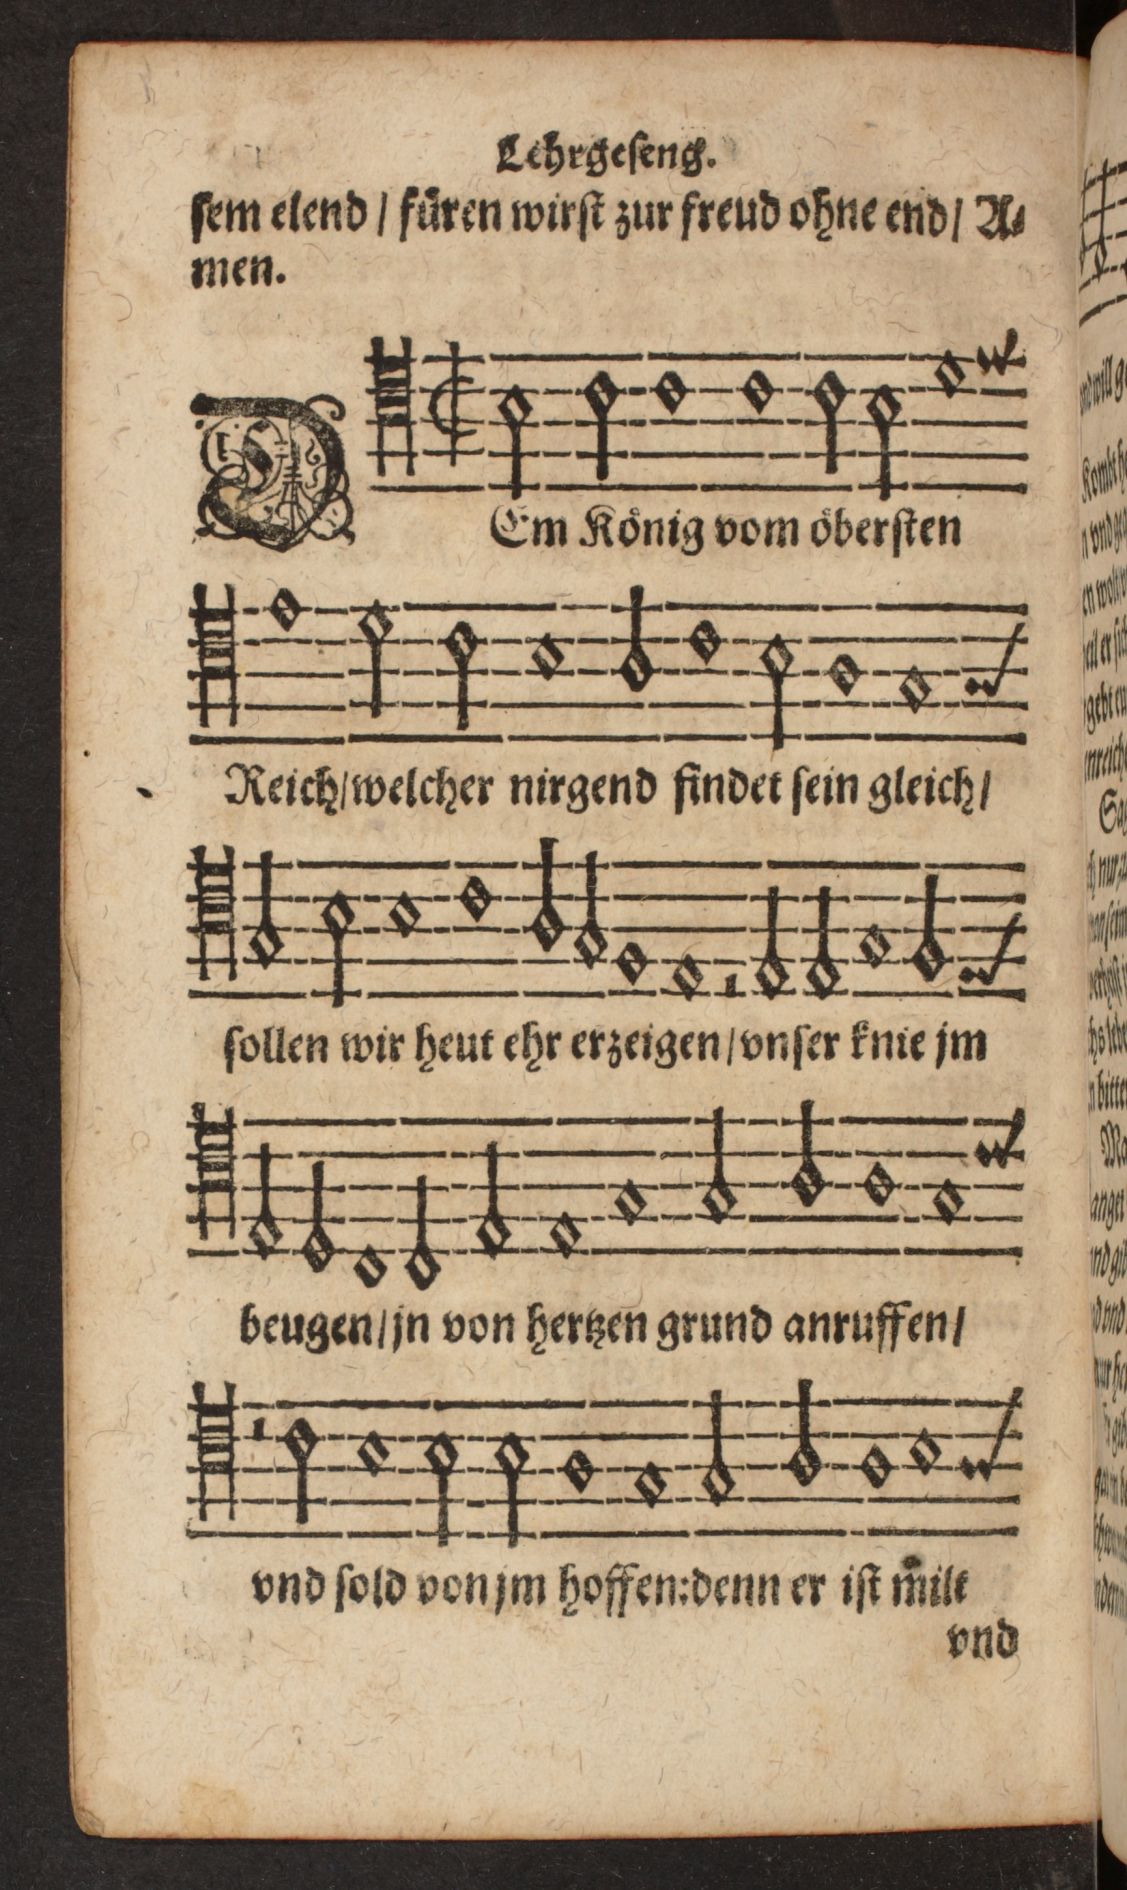 Lehrgeseng.
sem elend / füren wirst zur freud ohne end / A⸗
men.
DEm König vom öbersten
Reich/welcher nirgend findet sein gleich/
sollen wir heut ehr erzeigen/vnser knie jm
beugen/jn von hertzen grund anruffen/
vnd sold von jm hoffen:denn er ist milt
vnd